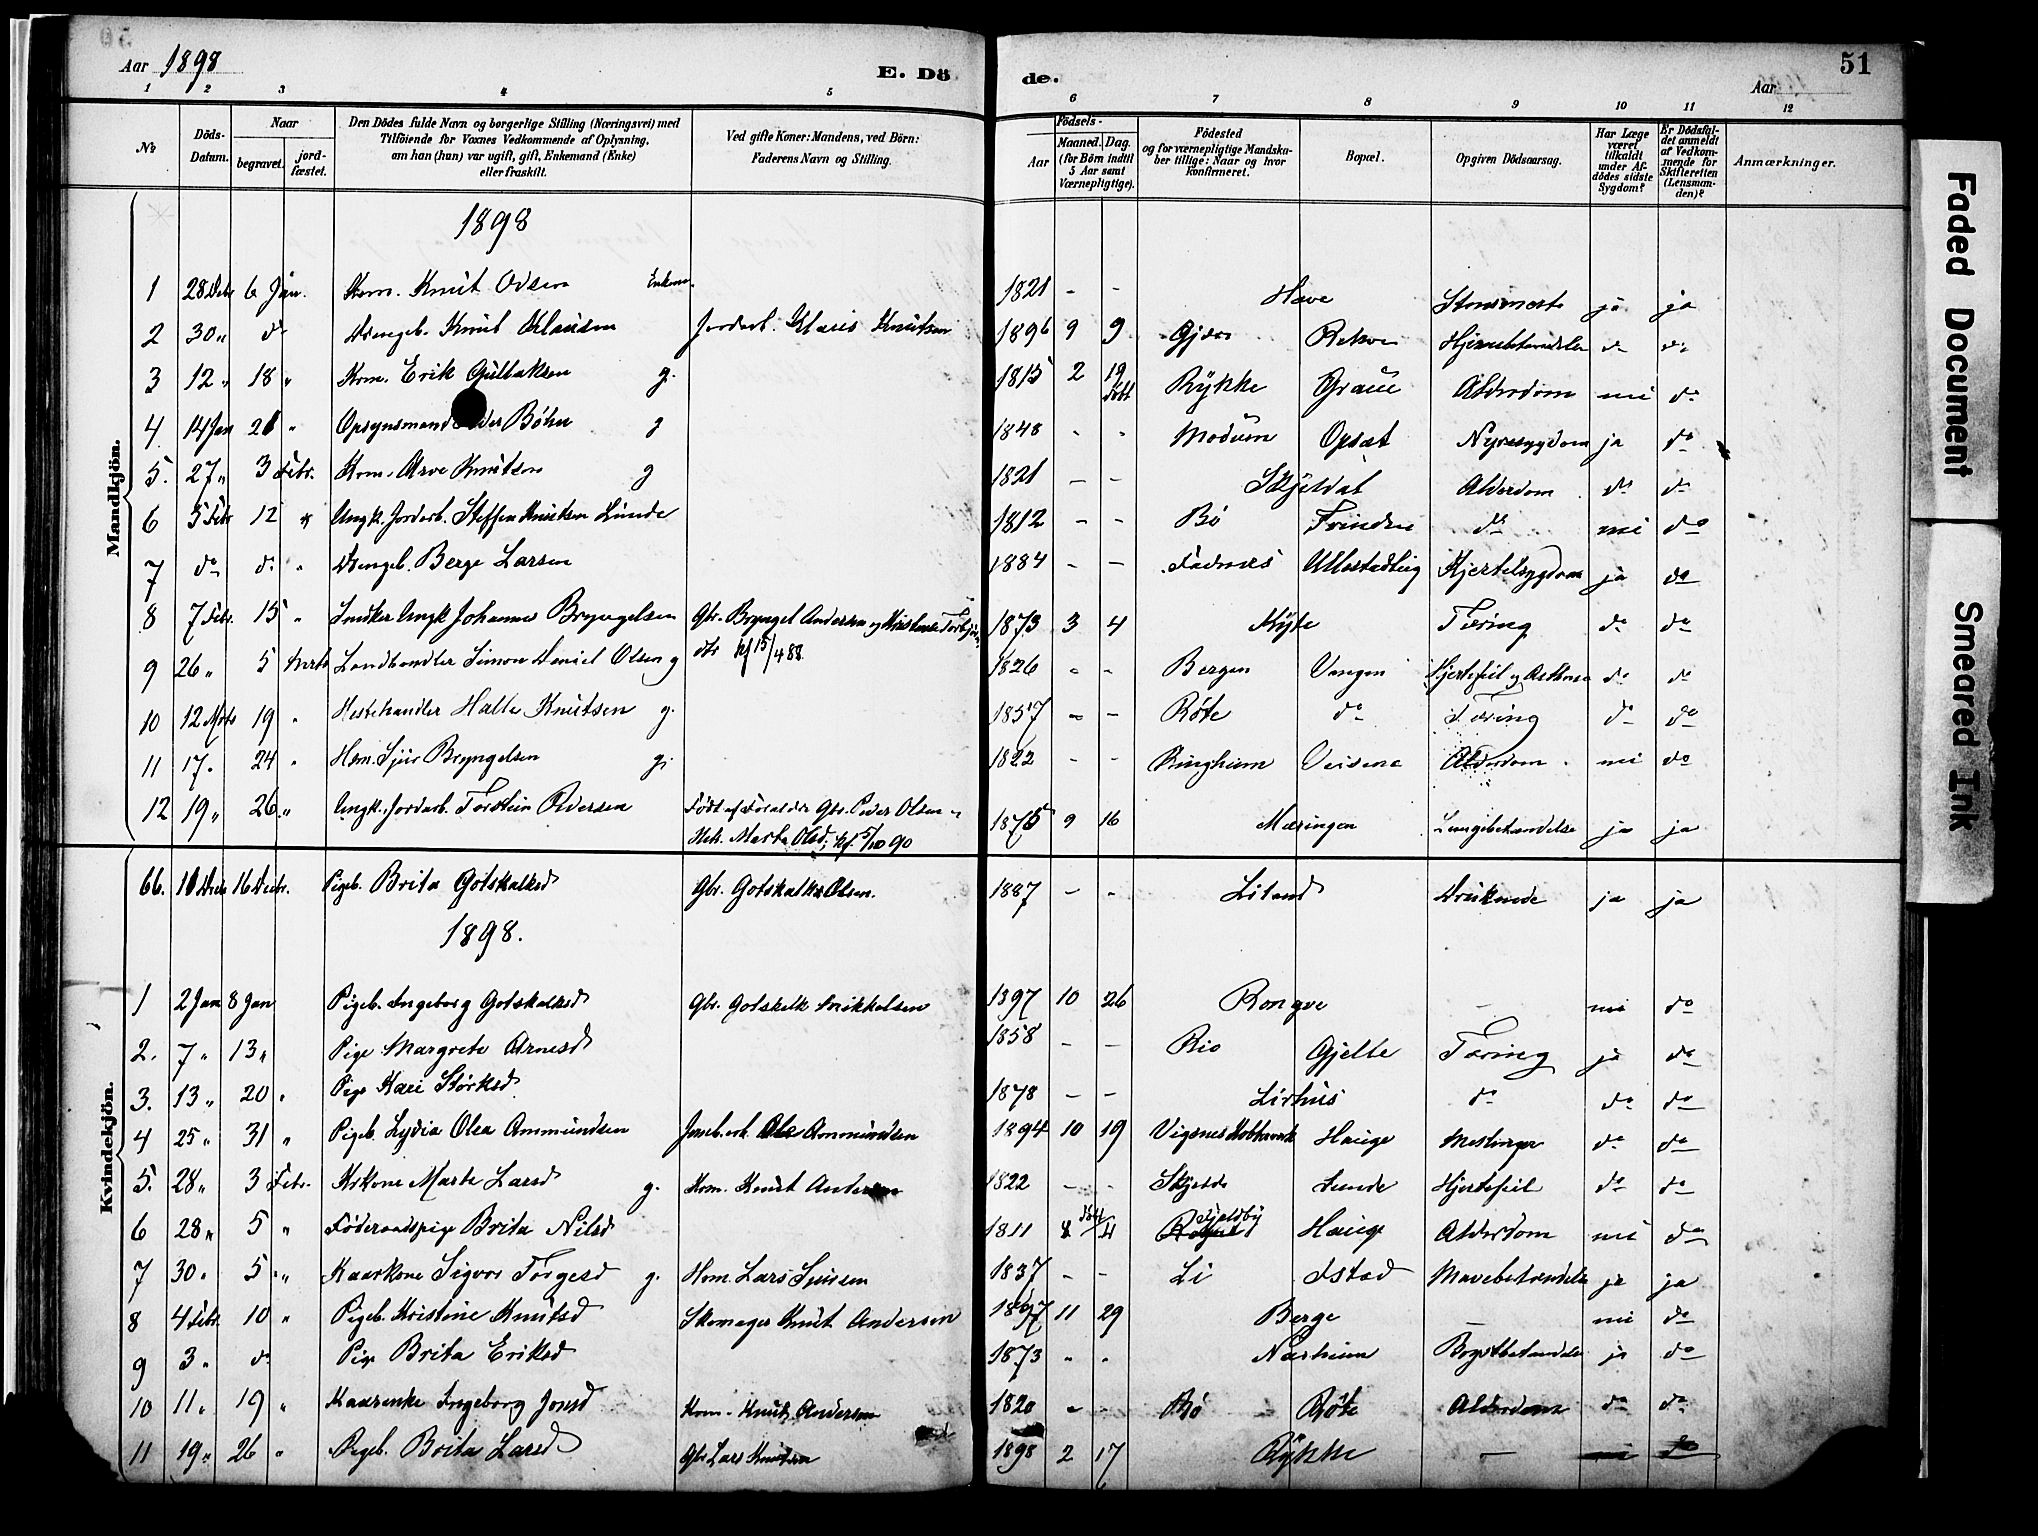 50
51
Aar 1898
E. Döde.
Aar
1 2 3 4 5 6 7 8 9 10 11 12
No
Döds-Datum.
Naar
begravet.
jordfæstet.
Den Dödes fulde Navn og borgerlige Stilling (Næringsvei) med
Tilföiende for Voxnes Vedkommende af Oplysning,
om han (hun) var ugift, gift, Enkemand (Enke)
eller fraskilt.
Ved gifte Koner: Mandens, ved Börn:
Faderens Navn og Stilling.
Födsels-
Aar
Maaned. Dag.
(for Börn indtil
5 Aar samt
Værnepligtige).
Födested
og for værnepligtige Mandskaber tillige: Naar og hvor
konfirmeret.
Bopæl.
Opgiven Dödsaarsag.
Har Læge
været
tilkaldt
under Afdödes sidste
Sygdom?
Er Dödsfaldet anmeldt
af Vedkommende for
Skifteretten
(Lensmanden)?
Anmærkninger.
Mandkjön.
1898
1 28 Debr 6 Jan. Kom. Knut Odsen Enkem. 1821 - - Hæve ja ja
2 30 " do Drengeb. Knut Klausen Jordarb. Klaus Knutsen 1896 9 9 Gjøre Rekve do do
3 12 " 18 " Kom. Erik Gullaksen g. 1815 2 19 døbt Rykke Graue Alderdom nei do
4 14 Jan 21 " Opsynsmand Peder Bøhn g 1848 - - Modum Opsæt Nyresygdom ja do
5. 27 " 3 Febr. Kom. Arve Knutsen g 1821 - - Skjeldal Alderdom do do
6 5 Febr 12 " Ungk. Jordarb. Steffen Knutsen Lunde 1812 - - Bø Trinden do nei do
7 do do " Drengeb. Berge Larsen 1884 - - Fadnes Ullestadteig Hjertesygdom ja do
8 7 Febr. 15 " Snidker Ungk Johannes Bryngelsen Gbr. Bryngel Andersen og Kristense Torbjørnsdtr kf 15/4 88. 1873 3 4 Kyte Tæring do do
9 26 " 5 Marts Landhandler Simon Daniel Olsen g 1826 - - Bergen Vangen Hjertefeil og Asthma do do
10 12 Mrts 19 " Hestehandler Halle Knutsen g. 1857 - - Røte do Tæring do do
11 17 " 24 " Hsm. Sjur Bryngelsen g. 1822 - - Ringheim Veisene Alderdom nei do
12 19 " 26 " Ungk. Jordarb. Torstein Pedersen Født af Forældre Gbr. Peder Olsen og
Hek. Marta Olsd; kf. 5/10 90 1875 9 16 Mæringen Lungebetændelse ja ja
66. 11 Debr 16 Debr. Pigeb. Brita Gotskalksd Gbr. Gotskalk Olsen. 1887 - - Liland Druknede ja ja
Kvindekjön.
1898.
1 2 Jan 8 Jan Pigeb. Ingeborg Gotskalksd Gbr. Gotskalk Mikkelsen 1897 10 26 Rongve - nei do
2. 7 " 13 " Pige Margrete Arnesd 1858 - - Rio Gjelle Tæring ja do
3. 13 " 20 " Pige Kari Størksd 1878 - - Lirhus do do do
4 25 " 31 " Pigeb. Lydia Olea Ammundsen Jernb.arb. Ole Ammundsen 1894 10 19 Vigsnes Kobberverk Hauge Meslinger do do
5. 28 " 3 Febr. Kskone Marta Larsd g. Kom. Knut Andersen 1822 - - Skjelde Lunde Hjertefeil do do
6 28 " 5 " Føderaadspige Brita Nilsd 1811 døbt 4 Tjeldby Hauge Alderdom nei do
7 30 " 5 " Kaarkone Sigvor Torgesd g. Hsm. Lars Sjursen 1837 - - Li Istad Mavebetændelse ja ja
8 4 Febr. 10 " Pigeb. Kristine Knutsd Skomager Knut Andersen 1897 11 29 Berge nei do
9 3 " do Pige Brita Eriksd 1873 " " Nærheim Brystbetændelse ja do
10 11 " 19 " Kaarenke Ingeborg Jonsd Kom. Knut Andersen 1820 - - Bø Røte Alderdom do do
11 19 " 26 " Pigeb. Brita Larsd Gbr Lars Knutsen 1898 2 17 Rykke - nei do
Faded Document
Smeared Ink